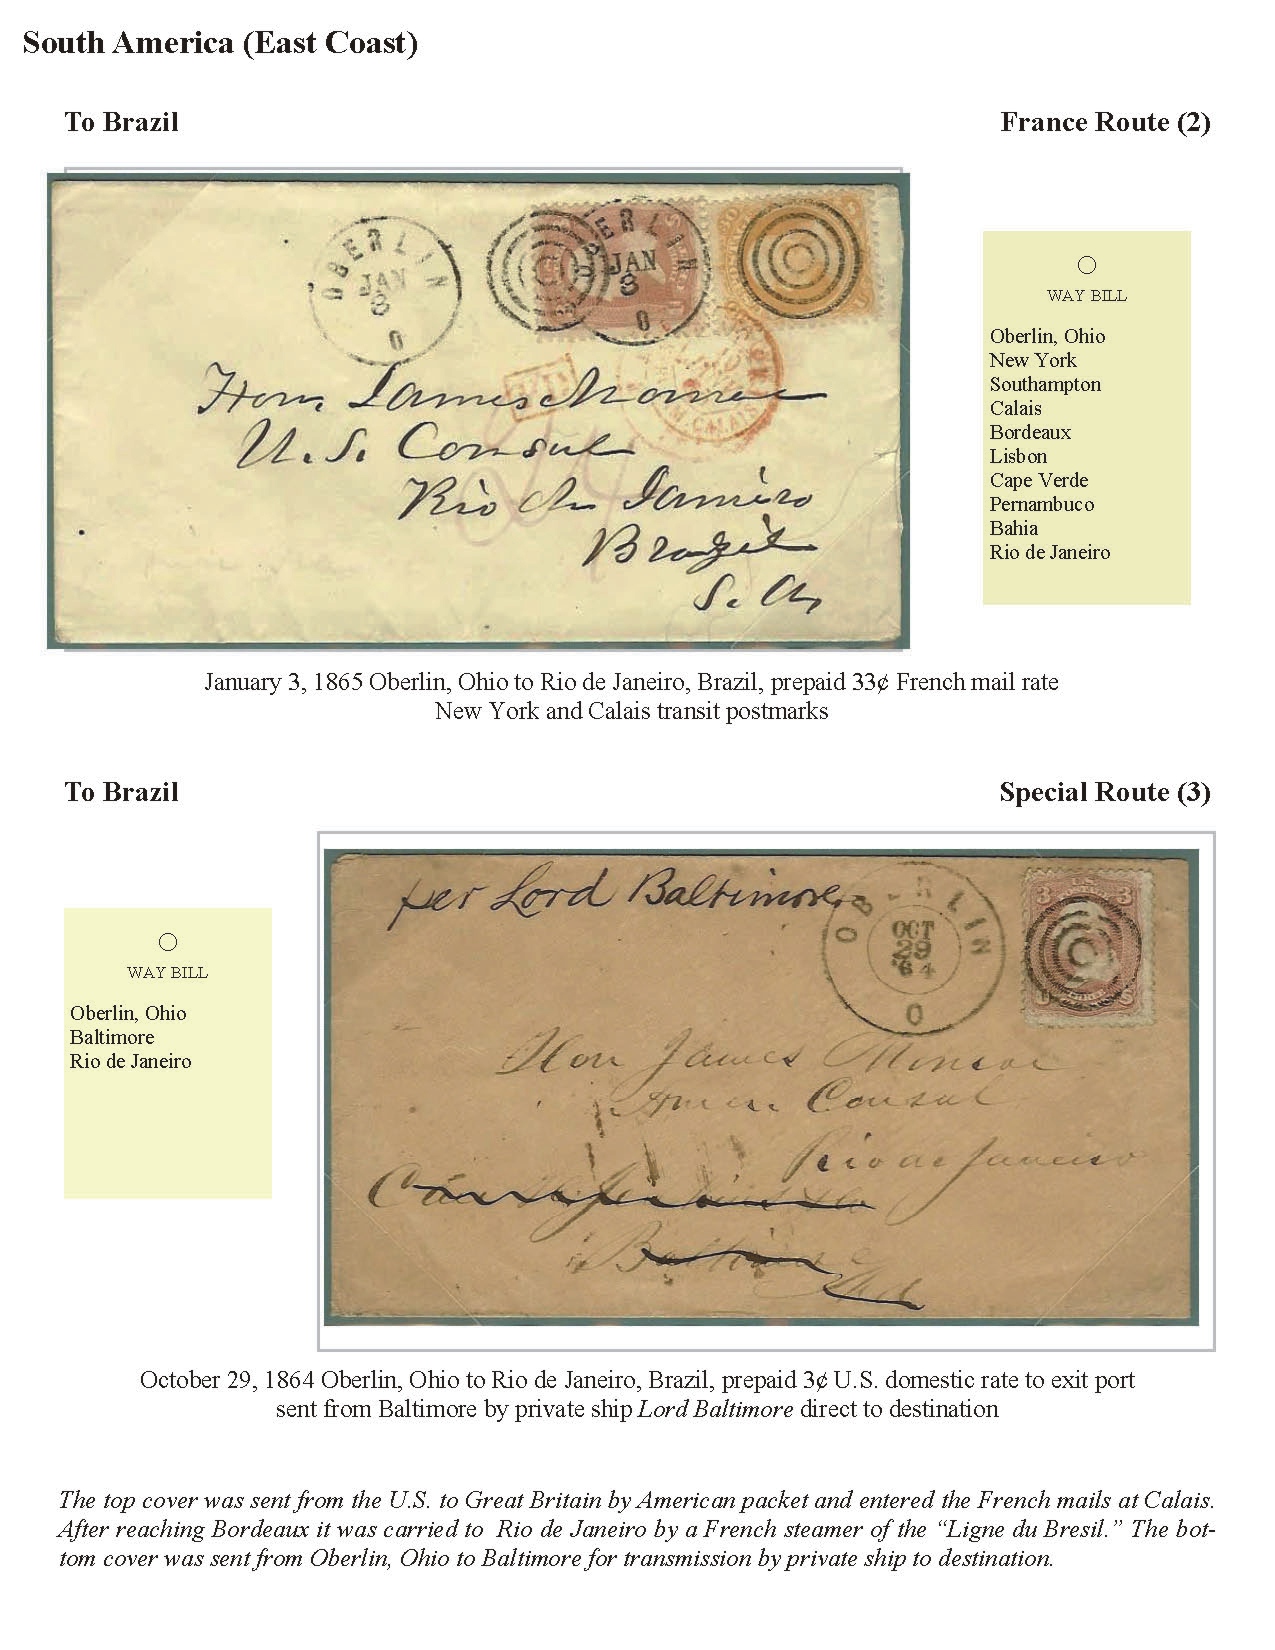 South America (East Coast)
To Brazil
France Route (2)
OBERLIN
JAN
3
O
OBERLIN
JAN
3
O
P.D.
CALAIS
Hon. James Monroe
U. S. Consul
Rio de Janeiro
Brazil
S. A.
WAY BILL
Oberlin, Ohio
New York
Southampton
Calais
Bordeaux
Lisbon
Cape Verde
Pernambuco
Bahia
Rio de Janeiro
January 3, 1865 Oberlin, Ohio to Rio de Janeiro, Brazil, prepaid 33¢ French mail rate
New York and Calais transit postmarks
To Brazil
Special Route (3)
WAY BILL
Oberlin, Ohio
Baltimore
Rio de Janeiro
per Lord Baltimore
OBERLIN
OCT
29
'64
O
3 3
U S
Hon James Monroe
Amer. Consul
Rio de Janeiro
Baltimore
Md
October 29, 1864 Oberlin, Ohio to Rio de Janeiro, Brazil, prepaid 3¢ U.S. domestic rate to exit port
sent from Baltimore by private ship Lord Baltimore direct to destination
The top cover was sent from the U.S. to Great Britain by American packet and entered the French mails at Calais.
After reaching Bordeaux it was carried to Rio de Janeiro by a French steamer of the “Ligne du Bresil.” The bot-
tom cover was sent from Oberlin, Ohio to Baltimore for transmission by private ship to destination.